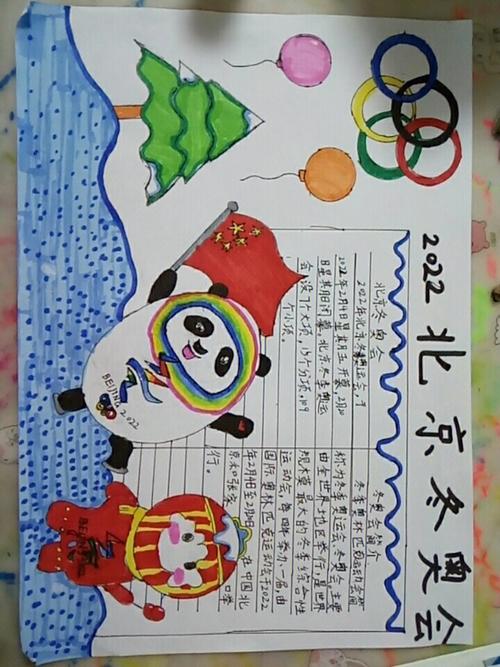 2022北京冬奥会
北京冬奥会
2022年北京冬季奥运会,于
2022年2月4日星期五开幕,2月20
日星期日闭幕。北京冬季奥运
会设7大项,15个分项,109
个小项。
冬奥会简介
冬季奥林匹克运动会简
称为冬季奥运会、冬奥会。主要
由全世界地区举行,是世界
规模最大的冬季综合性
运动会,每四年举办一届,由
国际奥林匹克运动会于2022
年2月4日至2月20日在中国北
京和张家口举
行。
BEIJING 2022